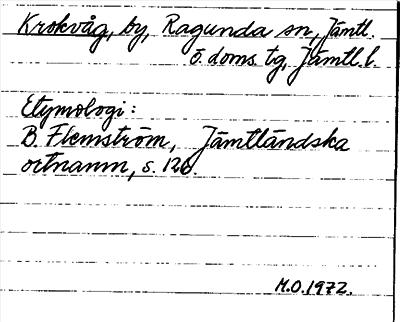 Krokvåg, by, Ragunda sn, Jämtl.
ö. doms. tg, Jämtl. l.
Etymologi:
B. Flemström, Jämtländska
ortnamn, s. 126.
M.O. 1972.